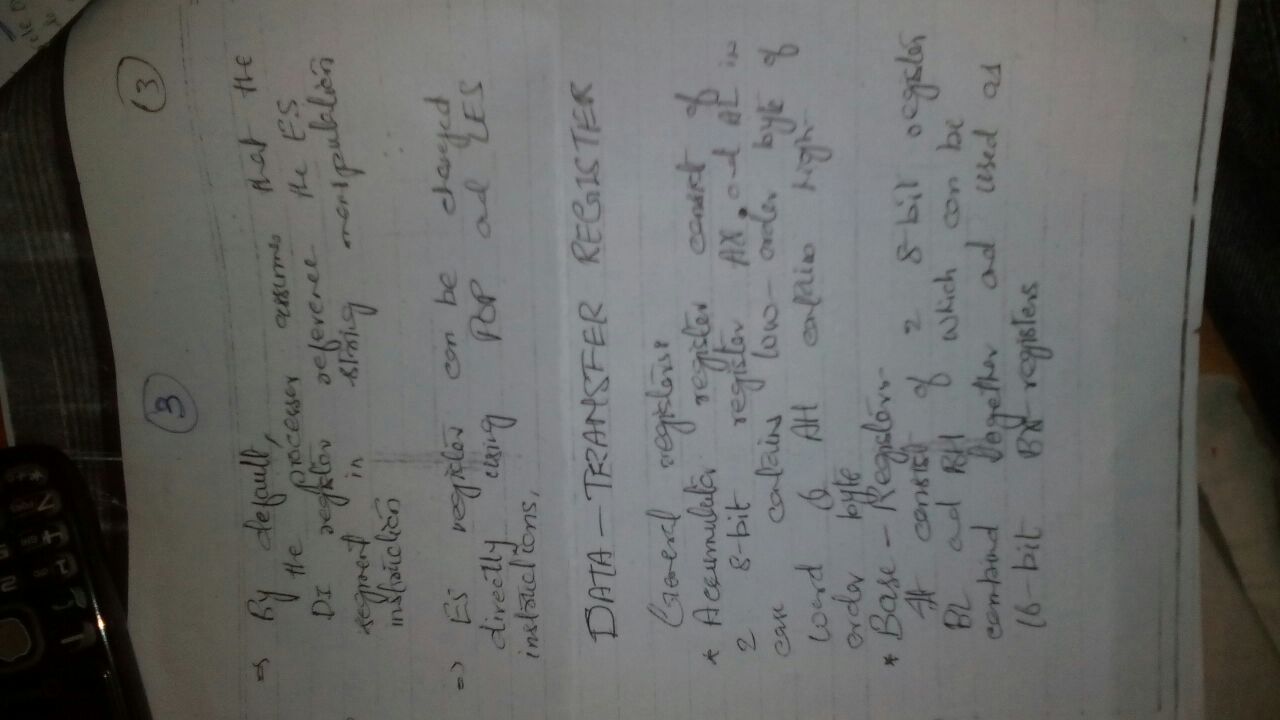 3
(3)
⇒ By default,
the processer assumes that the
DI register reference the ES
segment in string manipulation
instruction
⇒ ES register can be changed
directly using POP and LES
instructions,
DATA-TRANSFER REGISTER
General registers:
* Accumulator register consist of
2 8-bit register AX. and AL in
can contains low-order byte of
word & AH contain high-
order byte
* Base - Register-
It consist of 2 8-bit register
BL and BH which can be
combind together and used as
16-bit BX-registers